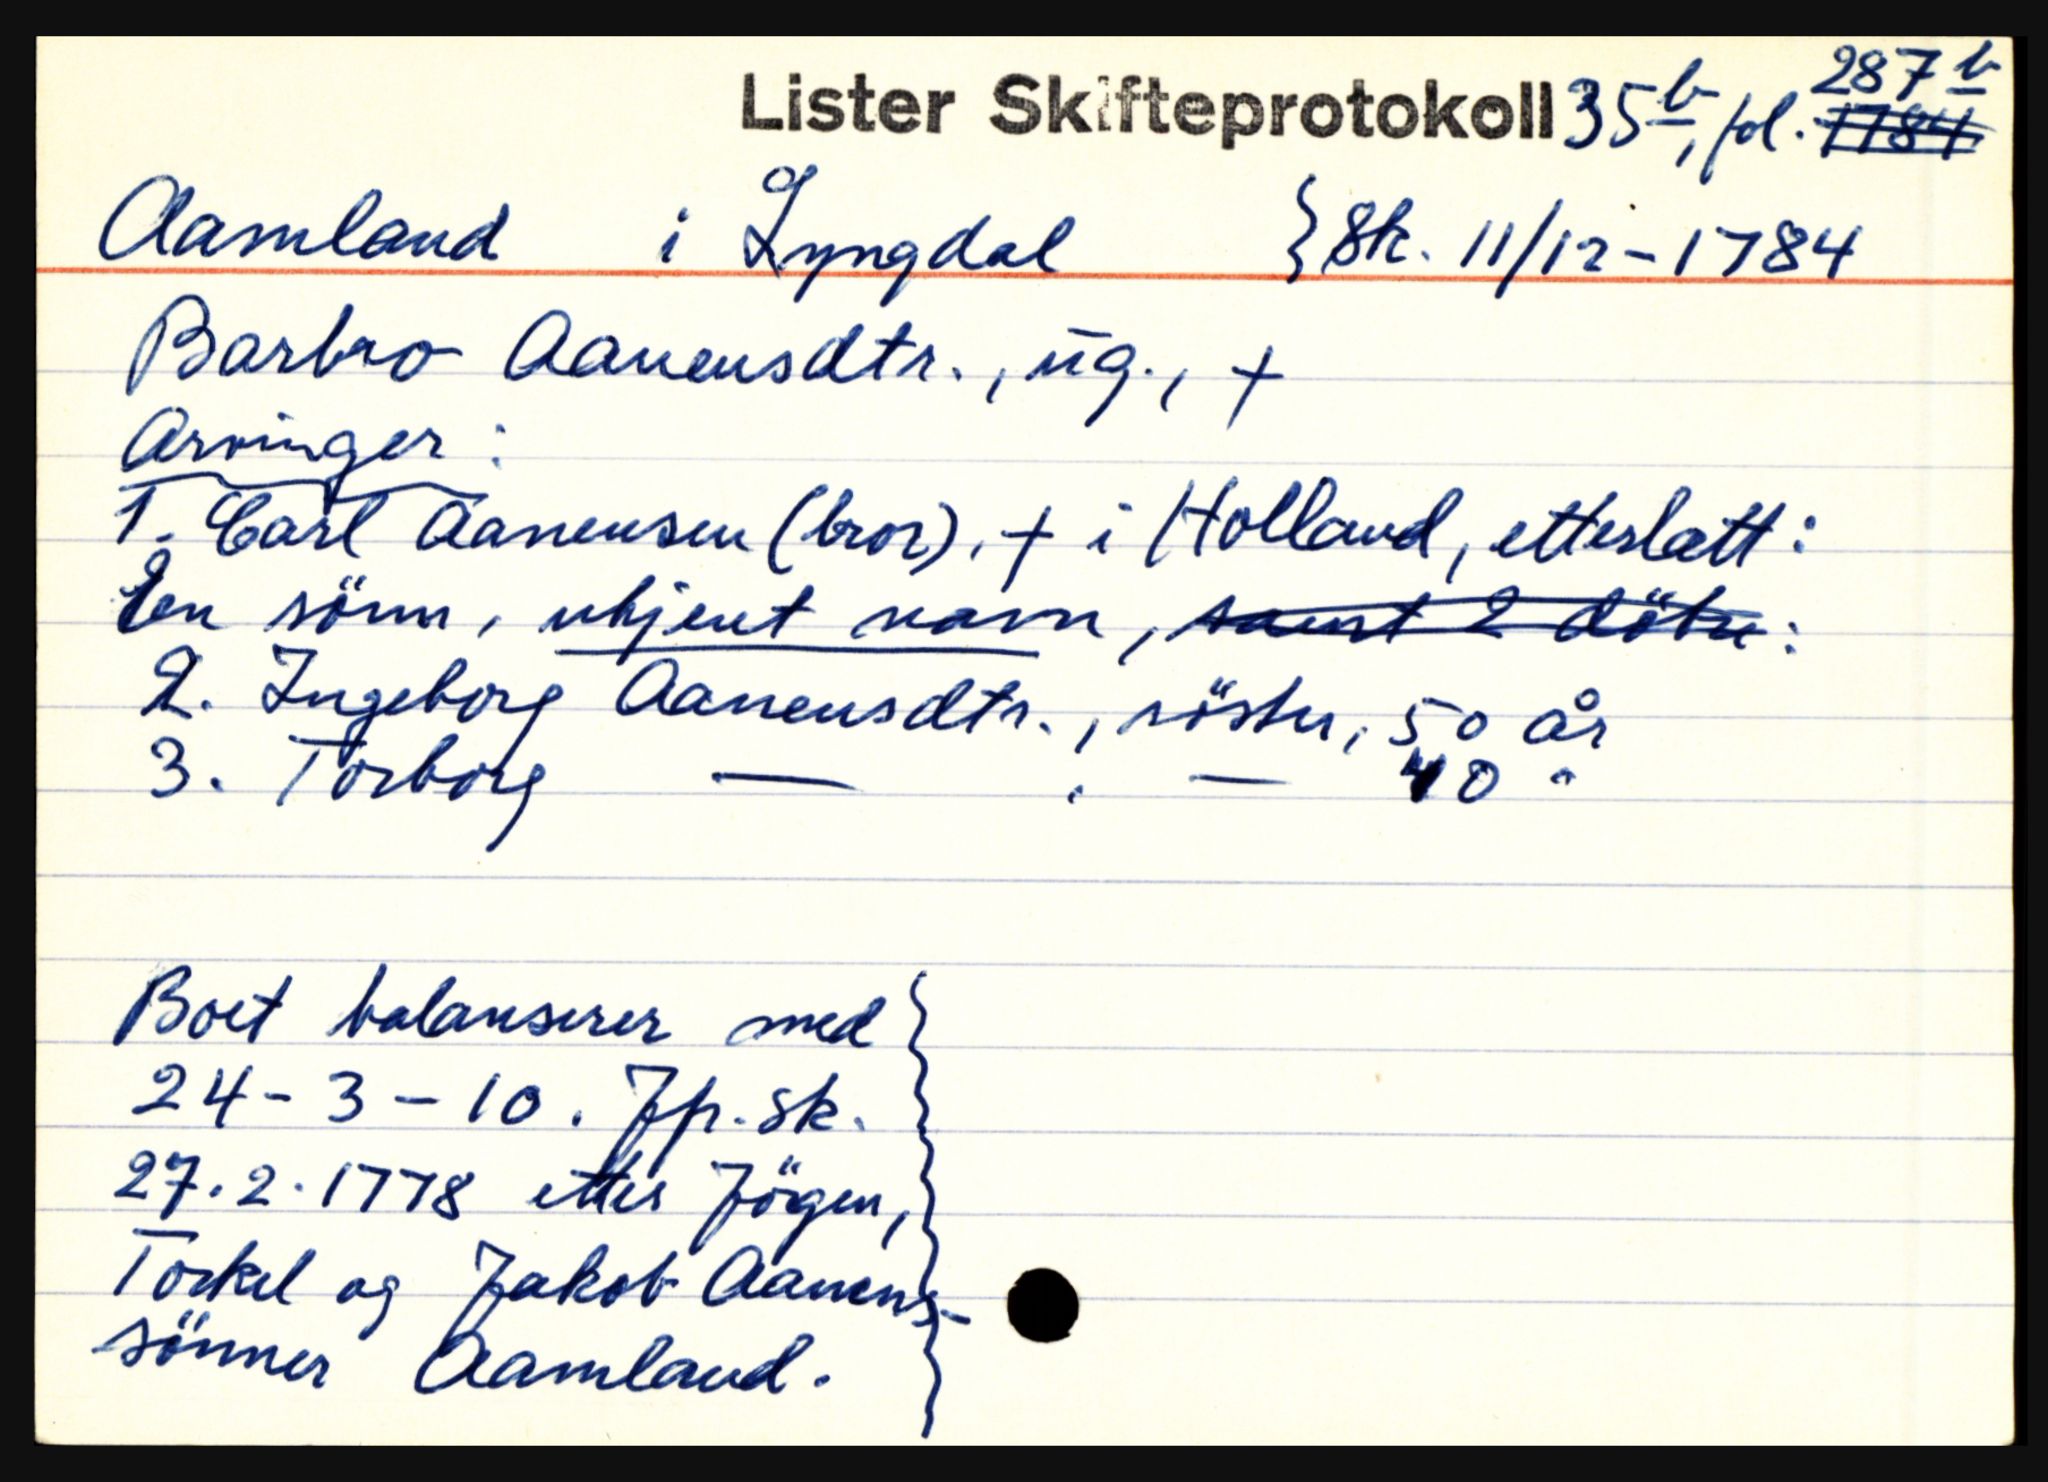 Lister Skifteprotokoll 35 b, fol. 287 b 1784
Aamland i Lyngdal } Sk. 11/12-1784
Barbro Aanensdtr., ug., +
Arvinger:
1. Carl Aanensen (bror), + i Holland, etterlatt:
En sönn, ukjent navn, samt 2 döttre:
2. Ingeborg Aanensdtr., söster, 50 år
3. Torborg — , — 40 "
Boet balanserer med
24-3-10. Jfr. sk.
27.2.1778 etter Jörgen,
Torkel og Jakob Aanens-
sönner Aamland.